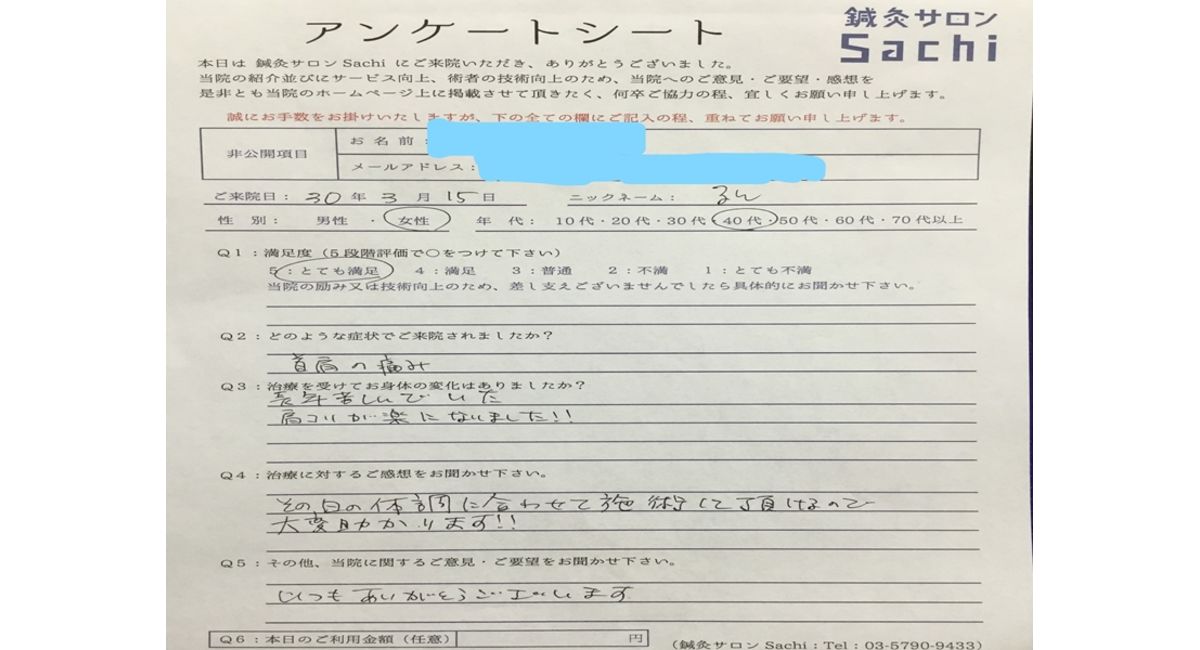 アンケートシート
鍼灸サロン
Sachi
本日は 鍼灸サロン Sachi にご来院いただき、ありがとうございました。
当院の紹介並びにサービス向上、術者の技術向上のため、当院へのご意見・ご要望・感想を
是非とも当院のホームページ上に掲載させて頂きたく、何卒ご協力の程、宜しくお願い申し上げます。
誠にお手数をお掛けいたしますが、下の全ての欄にご記入の程、重ねてお願い申し上げます。
非公開項目
お名前:
メールアドレス:
ご来院日: 30 年 3 月 15 日 ニックネーム: るん
性 別: 男性 ・ 女性 年 代: 10代・20代・30代・40代・50代・60代・70代以上
Q1:満足度(5段階評価で○をつけて下さい)
5:とても満足 4:満足 3:普通 2:不満 1:とても不満
当院の励み又は技術向上のため、差し支えございませんでしたら具体的にお聞かせ下さい。
Q2:どのような症状でご来院されましたか?
首肩の痛み
Q3:治療を受けてお身体の変化はありましたか?
長年苦しんでいた
肩コリが楽になりました!!
Q4:治療に対するご感想をお聞かせ下さい。
その日の体調に合わせて施術して頂けるので
大変助かります!!
Q5:その他、当院に関するご意見・ご要望をお聞かせ下さい。
いつもありがとうございます
Q6:本日のご利用金額(任意) 円
(鍼灸サロン Sachi:Tel:03-5790-9433)